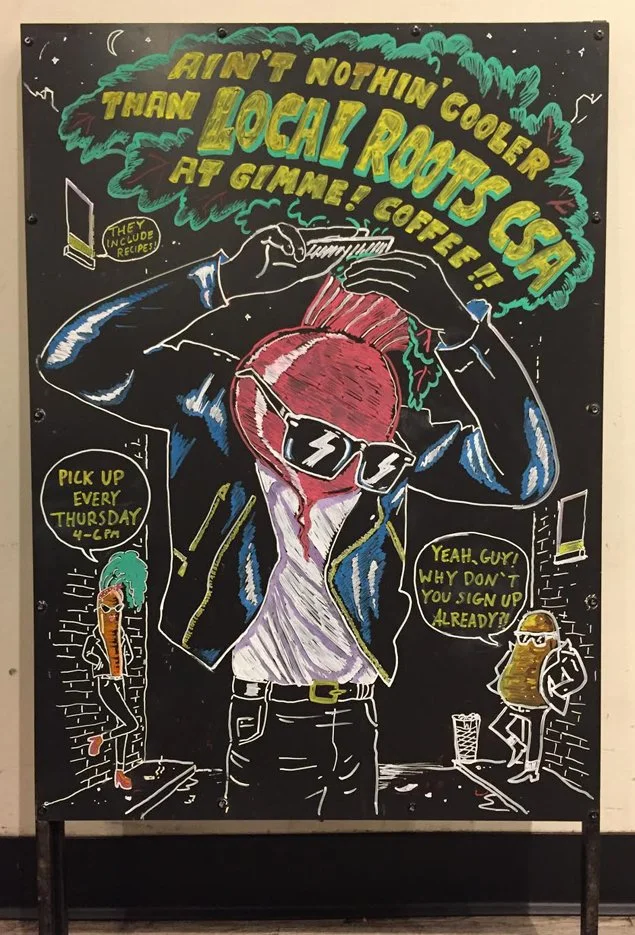 AIN'T NOTHIN' COOLER
THAN LOCAL ROOTS CSA
AT GIMME! COFFEE!!
THEY
INCLUDE
RECIPES!
PICK UP
EVERY
THURSDAY
4-6PM
YEAH, GUY!
WHY DON'T
YOU SIGN UP
ALREADY?!